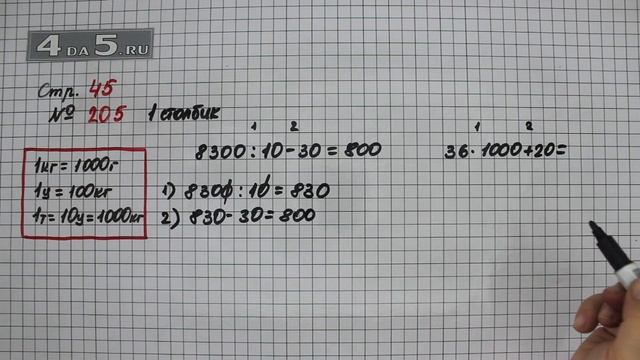 4 DA 5.RU
Стр. 45
№ 205 1 столбик
1 2
8300 : 10 - 30 = 800
1) 8300 : 10 = 830
2) 830 - 30 = 800
1 2
36 · 1000 + 20 =
1кг = 1000г
1ц = 100кг
1т = 10ц = 1000кг